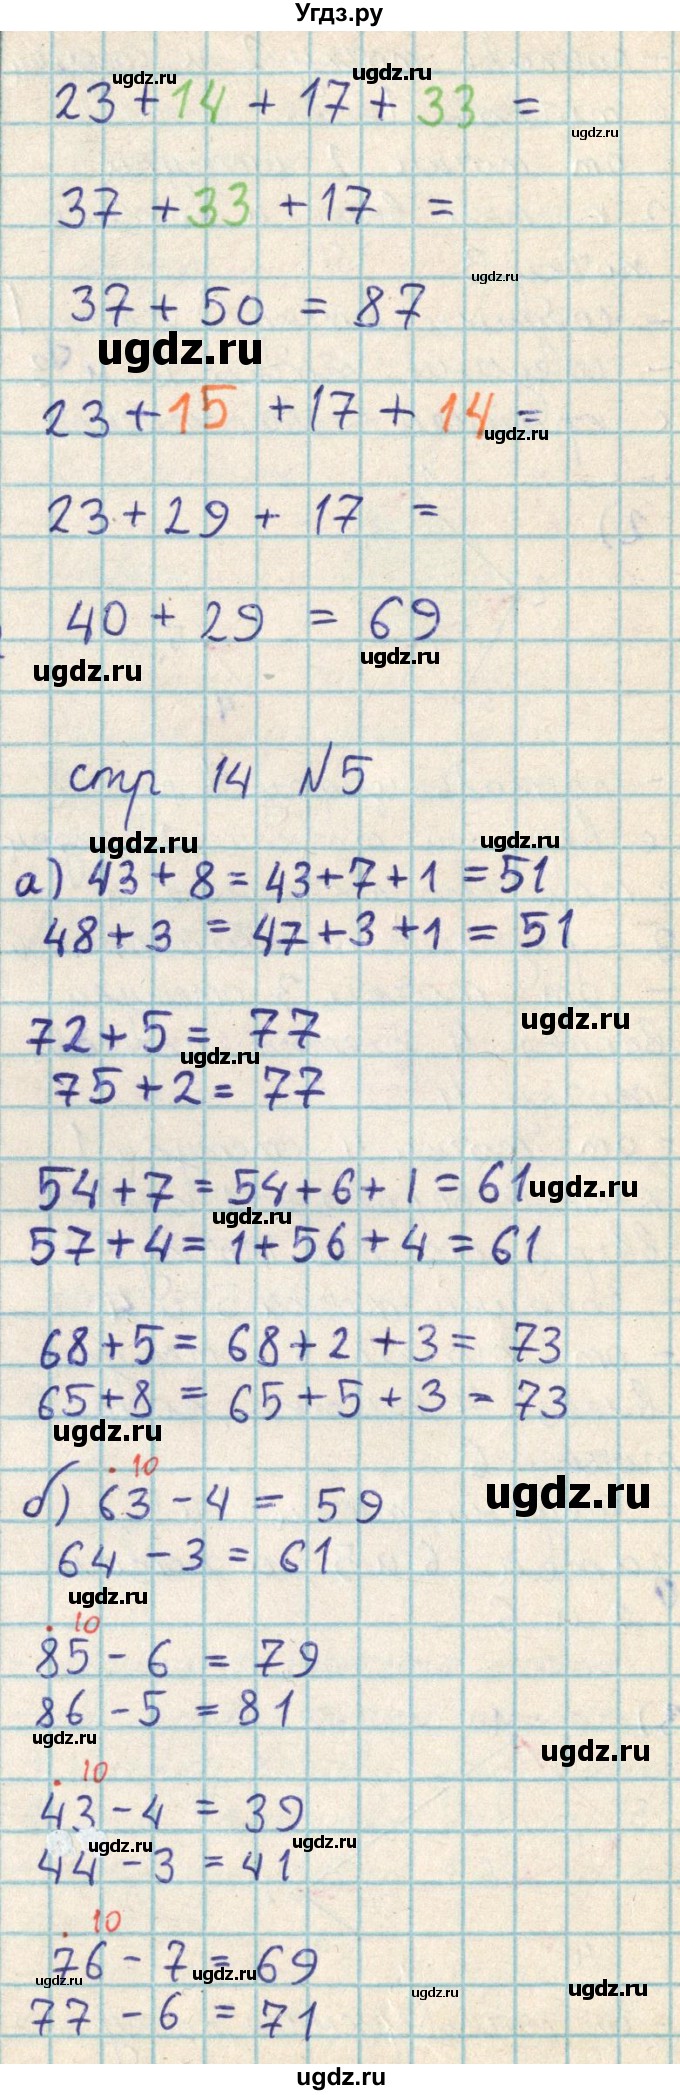 Угдз.ру
ugdz.ru ugdz.ru
23+14 + 17+ 33 =
ugdz.ru
37 +33 +17 =
ugdz.ru
37+50 = 87
ugdz.ru
23+15 +17+ 14 =
ugdz.ru
23+29 + 17 =
40 + 29 = 69
ugdz.ru ugdz.ru
стр 14 N5
ugdz.ru ugdz.ru
а) 43+8=43+7+1 =51
48+3 = 47+3+1 = 51
ugdz.ru
72+5= 77
ugdz.ru
75+2= 77
54+7 = 54+6+1 = 61
ugdz.ru
ugdz.ru
57+4= 1+56+4 = 61
68+5= 68+2 +3= 73
65+8 = 65+5+3 - 73
ugdz.ru
. 10
б) 63-4= 59
ugdz.ru
64 -3= 61
ugdz.ru
. 10
85- 6 = 79
86 -5 = 81
ugdz.ru
ugdz.ru
. 10
43-4 = 39
ugdz.ru ugdz.ru
44 -3 = 41
. 10
76- 7= 69
ugdz.ru ugdz.ru ugdz.ru ugdz.ru
77 -6 = 71
ugdz.ru